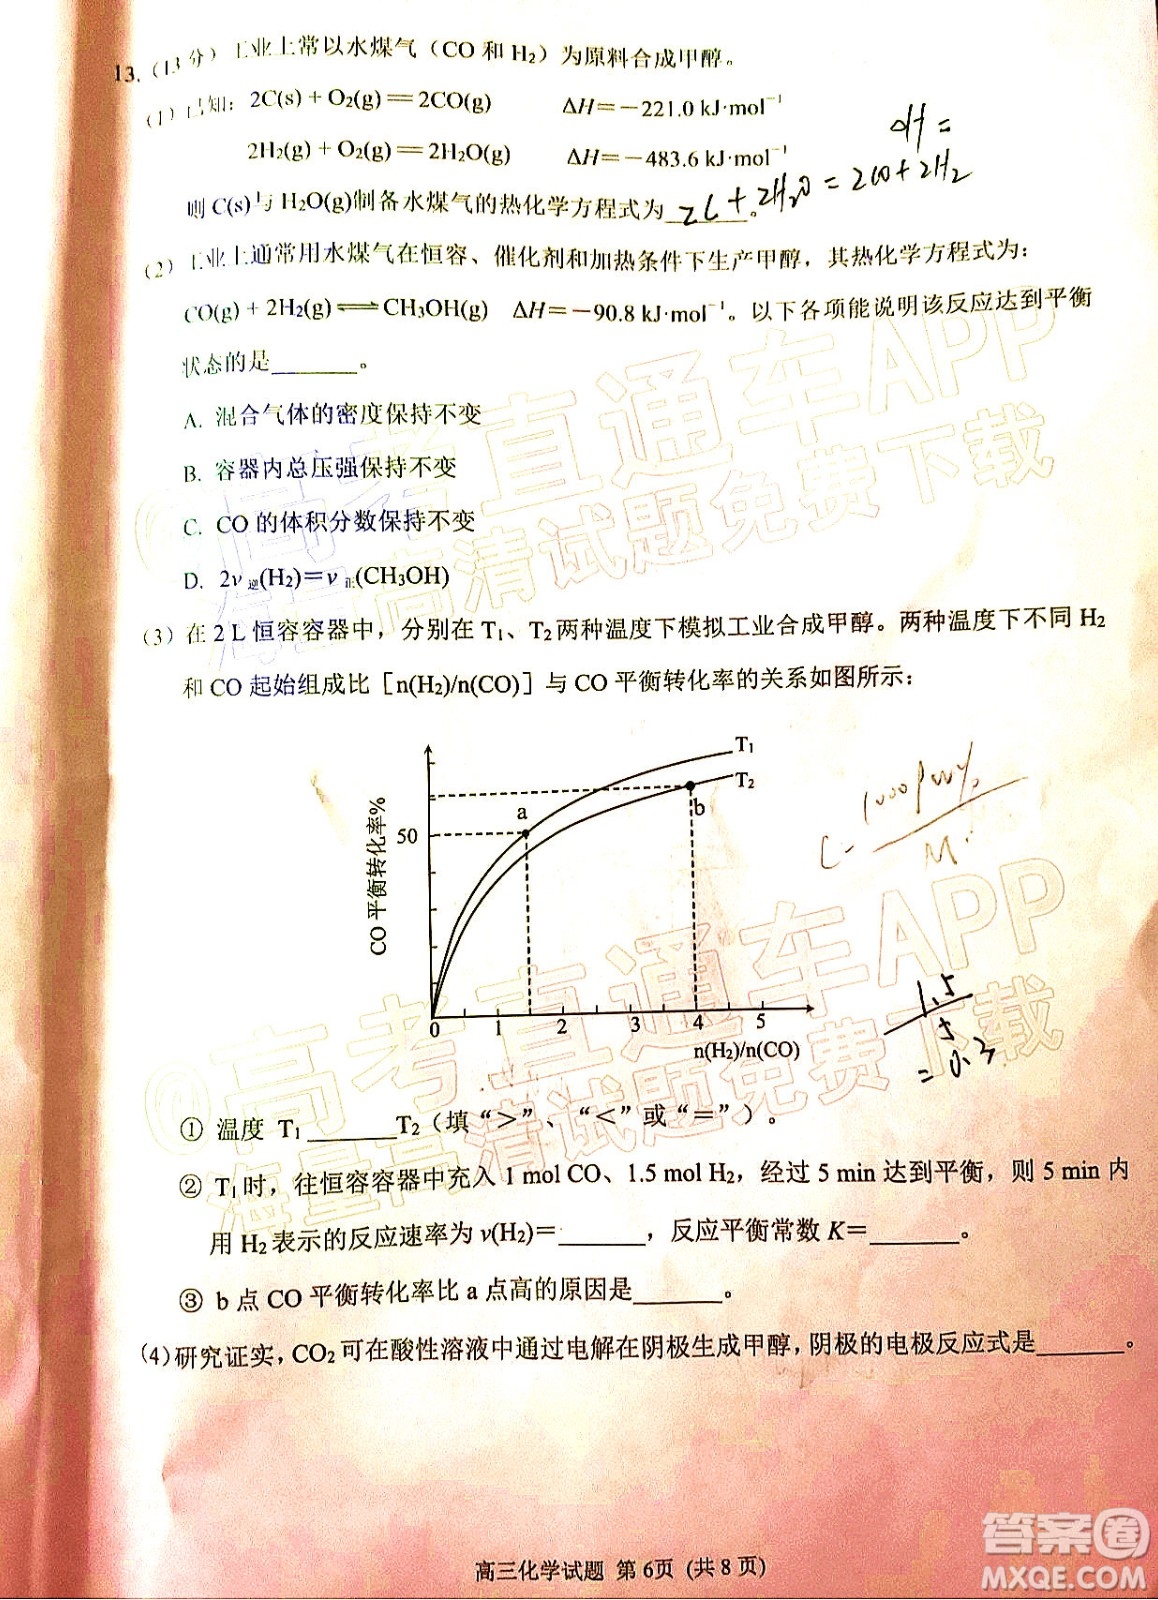 13.（13分）工业上常以水煤气（CO 和 H₂）为原料合成甲醇。
（1）已知：2C(s)＋O₂(g)＝2CO(g)　ΔH＝－221.0 kJ·mol⁻¹
2H₂(g)＋O₂(g)＝2H₂O(g)　ΔH＝－483.6 kJ·mol⁻¹
ΔH＝
则 C(s)与 H₂O(g)制备水煤气的热化学方程式为______。
2C + 2H₂O = 2CO + 2H₂
（2）工业上通常用水煤气在恒容、催化剂和加热条件下生产甲醇，其热化学方程式为：
CO(g)＋2H₂(g)⇌CH₃OH(g)　ΔH＝－90.8 kJ·mol⁻¹。以下各项能说明该反应达到平衡
状态的是______。
A. 混合气体的密度保持不变
B. 容器内总压强保持不变
C. CO 的体积分数保持不变
D. 2v逆(H₂)＝v正(CH₃OH)
（3）在 2 L 恒容容器中，分别在 T₁、T₂两种温度下模拟工业合成甲醇。两种温度下不同 H₂
和 CO 起始组成比［n(H₂)/n(CO)］与 CO 平衡转化率的关系如图所示：
CO 平衡转化率%
50
a
b
T₁
T₂
0 1 2 3 4 5
n(H₂)/n(CO)
1.5
5
= 0.3
① 温度 T₁______T₂（填“＞”、“＜”或“＝”）。
② T₁时，往恒容容器中充入 1 mol CO、1.5 mol H₂，经过 5 min 达到平衡，则 5 min 内
用 H₂表示的反应速率为 v(H₂)＝______，反应平衡常数 K＝______。
③ b 点 CO 平衡转化率比 a 点高的原因是______。
（4）研究证实，CO₂可在酸性溶液中通过电解在阴极生成甲醇，阴极的电极反应式是______。
高三化学试题 第 6页（共 8 页）
@高考直通车APP
海量高清试题免费下载
@高考直通车APP
海量高清试题免费下载
答案圈
MXQE.COM